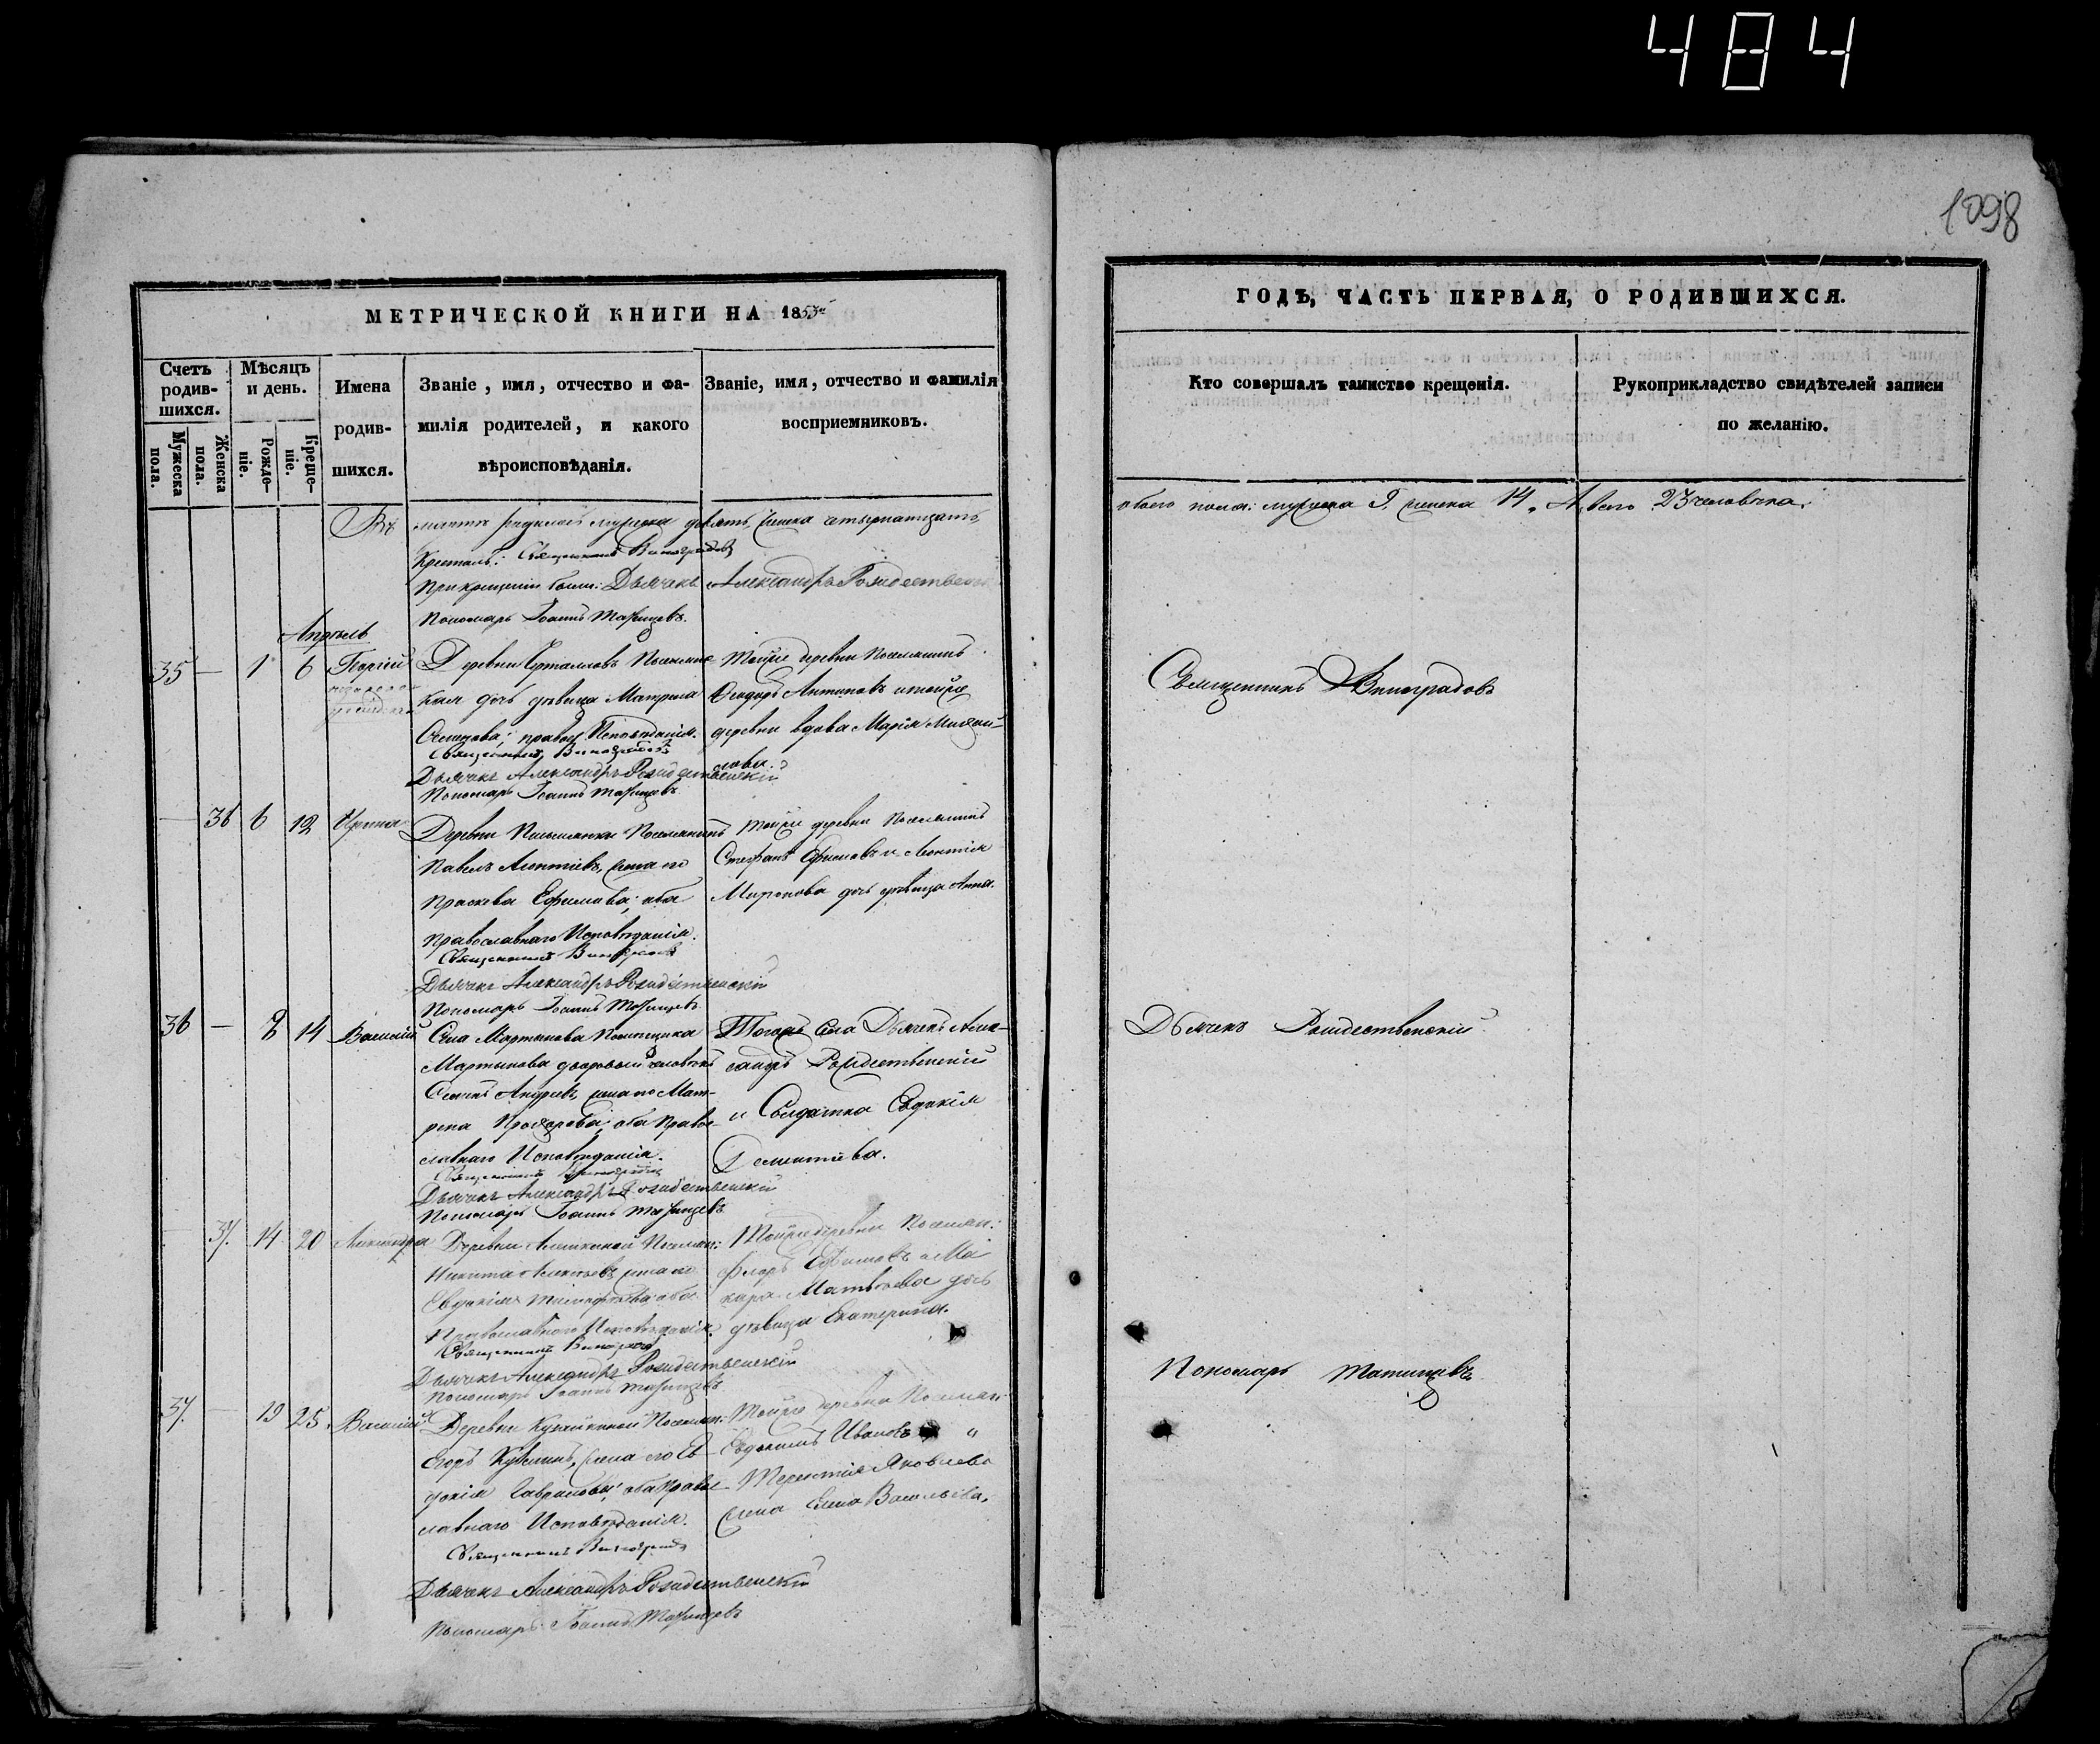 484
1098
МЕТРИЧЕСКОЙ КНИГИ НА 1853й
ГОДЪ, ЧАСТЬ ПЕРВАЯ, О РОДИВШИХСЯ.
Счетъ родив-
шихся.
Мужеска пола.
Женска пола.
Мѣсяцъ и день.
Рожде-
ніе.
Креще-
ніе.
Имена
родив-
шихся.
Званіе, имя, отчество и фа-
милія родителей, и какого
вѣроисповѣданія.
Званіе, имя, отчество и фамилія
воспріемниковъ.
Кто совершалъ таинство крещенія.
Рукоприкладство свидѣтелей записи
по желанію.
Въ мартѣ родилось мужеска девять, женска четырнатцать,
обоего пола: мужеска 9, женска 14, А всего 23 человѣка.
Крестилъ: Священникъ Виноградовъ
При крещеніи были: Дьячекъ Александръ Рождественскій
Пономарь Іоаннъ Татищевъ.
Апрѣль
35 — 1 6 Георгій
Деревни Поселянс-
кая дочь дѣвица Матрена
православ. Исповѣданія.
Священникъ Виноградовъ
Дьячекъ Александръ Рождественскій
Пономарь Іоаннъ Татищевъ
Тойже деревни Поселянинъ
Ѳеодоръ Антиповъ и тойже
деревни вдова Марія Михай-
лова.
Священникъ Виноградовъ
— 36 6 12 Ирина
Деревни Поселянинъ
Павелъ Леонтіевъ, жена его
Праскева Ефимова; оба
православнаго Исповѣданія.
Священникъ Виноградовъ
Дьячекъ Александръ Рождественскій
Пономарь Іоаннъ Татищевъ
Тойже деревни Поселянинъ
Стефанъ Ефимовъ и Леонтія
Миронова дочь дѣвица Анна.
36 — 8 14 Василій
Села Мартынова Помѣщика
Мартынова дворовый человѣкъ
Андреевъ, жена его Мат-
рена оба Право-
славнаго Исповѣданія.
Священникъ Виноградовъ
Дьячекъ Александръ Рождественскій
Пономарь Іоаннъ Татищевъ
Тогоже села Дьячекъ Алек-
сандръ Рождественскій
и Солдатка Евдокія
Дементіева.
Дьячекъ Рождественскій
— 37. 14 20 Александра
Деревни Алешкиной Поселян:
Никита жена его
Евдокія Тимофѣева оба
Православнаго Исповѣданія.
Священникъ Виноградовъ
Дьячекъ Александръ Рождественскій
Пономарь Іоаннъ Татищевъ
Тойже деревни Поселян:
Флоръ Ефимовъ и Ма-
кара Матвѣева дочь
дѣвица Екатерина.
Пономарь Татищевъ
37. — 19 25. Василій
Деревни Поселян:
Егоръ жена его Ев-
докія Гаврилова; оба Право-
славнаго Исповѣданія.
Священникъ Виноградовъ
Дьячекъ Александръ Рождественскій
Пономарь Іоаннъ Татищевъ
Тойже деревни Поселян:
Евдокимъ Ивановъ и
Терентія Яковлева
жена Елена Васильева.